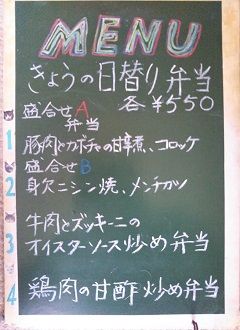 MENU
きょうの日替り弁当
各 ¥550
盛合せA
弁当
1 豚肉とカボチャの甘辛煮、コロッケ
盛合せB
2 身欠ニシン焼、メンチカツ
牛肉とズッキーニの
3 オイスターソース炒め弁当
4 鶏肉の甘酢炒め弁当